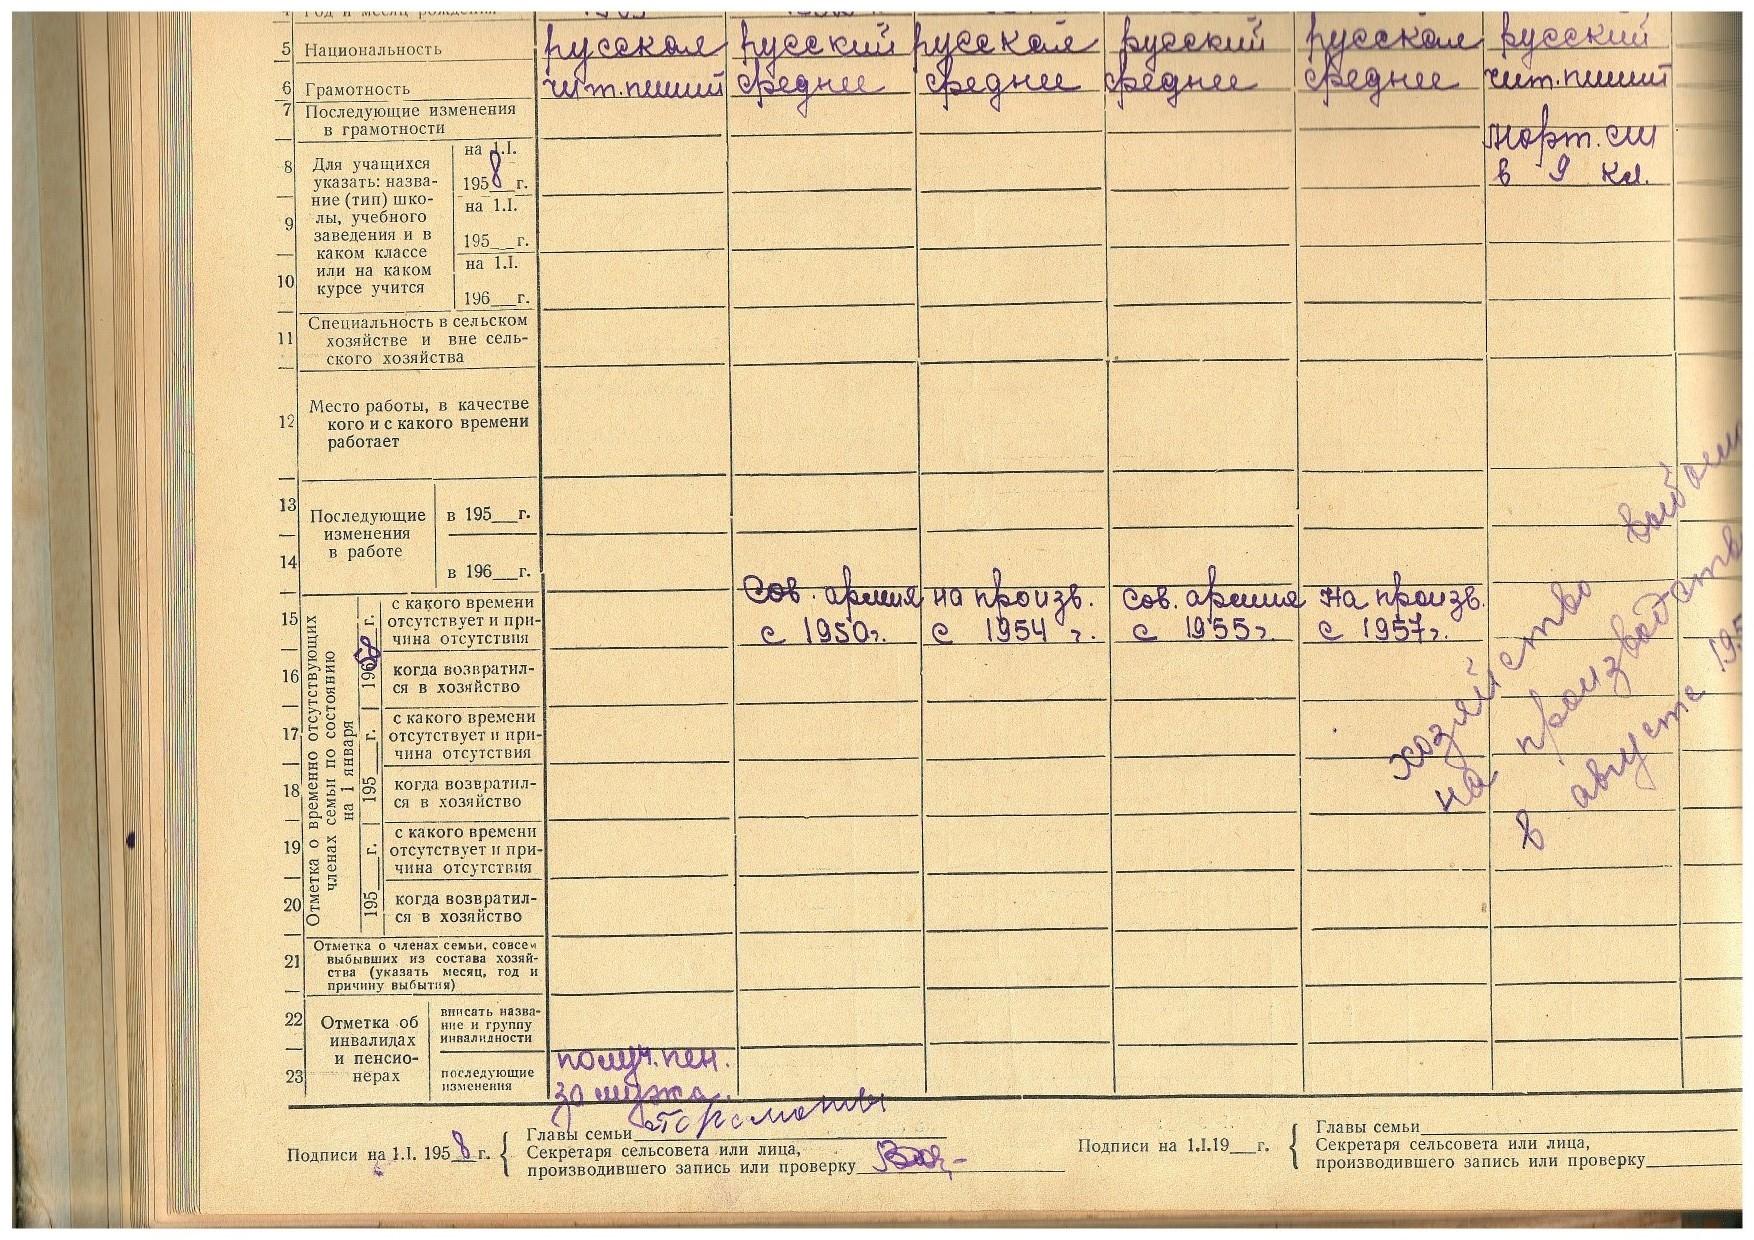 5 Национальность русская русский русская русский русская русский
6 Грамотность чит. пиший среднее среднее среднее среднее чит. пиший
7 Последующие изменения
в грамотности
8 Для учащихся
указать: назва-
ние (тип) шко-
лы, учебного
заведения и в
каком классе
или на каком
курсе учится
на 1.I.
1958 г.
в 9 кл.
9 на 1.I.
195__г.
10 на 1.I.
196__г.
11 Специальность в сельском
хозяйстве и вне сель-
ского хозяйства
12 Место работы, в качестве
кого и с какого времени
работает
13 Последующие
изменения
в работе
в 195__г.
14 в 196__г.
Отметка о временно отсутствующих
членах семьи по состоянию
на 1 января
15 с какого времени
отсутствует и при-
чина отсутствия
Сов. армия на произв. Сов. армия На произв.
с 1950г. с 1954 г. с 1955г. с 1957г.
16 когда возвратил-
ся в хозяйство
195__г.
17 с какого времени
отсутствует и при-
чина отсутствия
18 когда возвратил-
ся в хозяйство
195__г.
19 с какого времени
отсутствует и при-
чина отсутствия
20 когда возвратил-
ся в хозяйство
хозяйство
на производство
в августе
21 Отметка о членах семьи, совсем
выбывших из состава хозяй-
ства (указать месяц, год и
причину выбытия)
22 Отметка об
инвалидах
и пенсио-
нерах
вписать назва-
ние и группу
инвалидности
23 последующие
изменения
получ. пен.
за мужа.
Подписи на 1.I. 1958 г.
Главы семьи
Секретаря сельсовета или лица,
производившего запись или проверку
Подписи на 1.I.19__г.
Главы семьи
Секретаря сельсовета или лица,
производившего запись или проверку